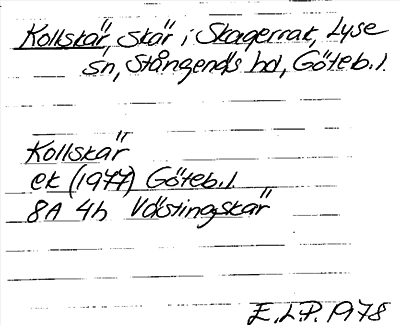 Kollskär, skär i Skagerrak, Lyse
sn, Stångenäs hd, Göteb. l.
Kollskär
ek (1977) Göteb. l.
8A 4h Västingskär
E.L.P. 1978